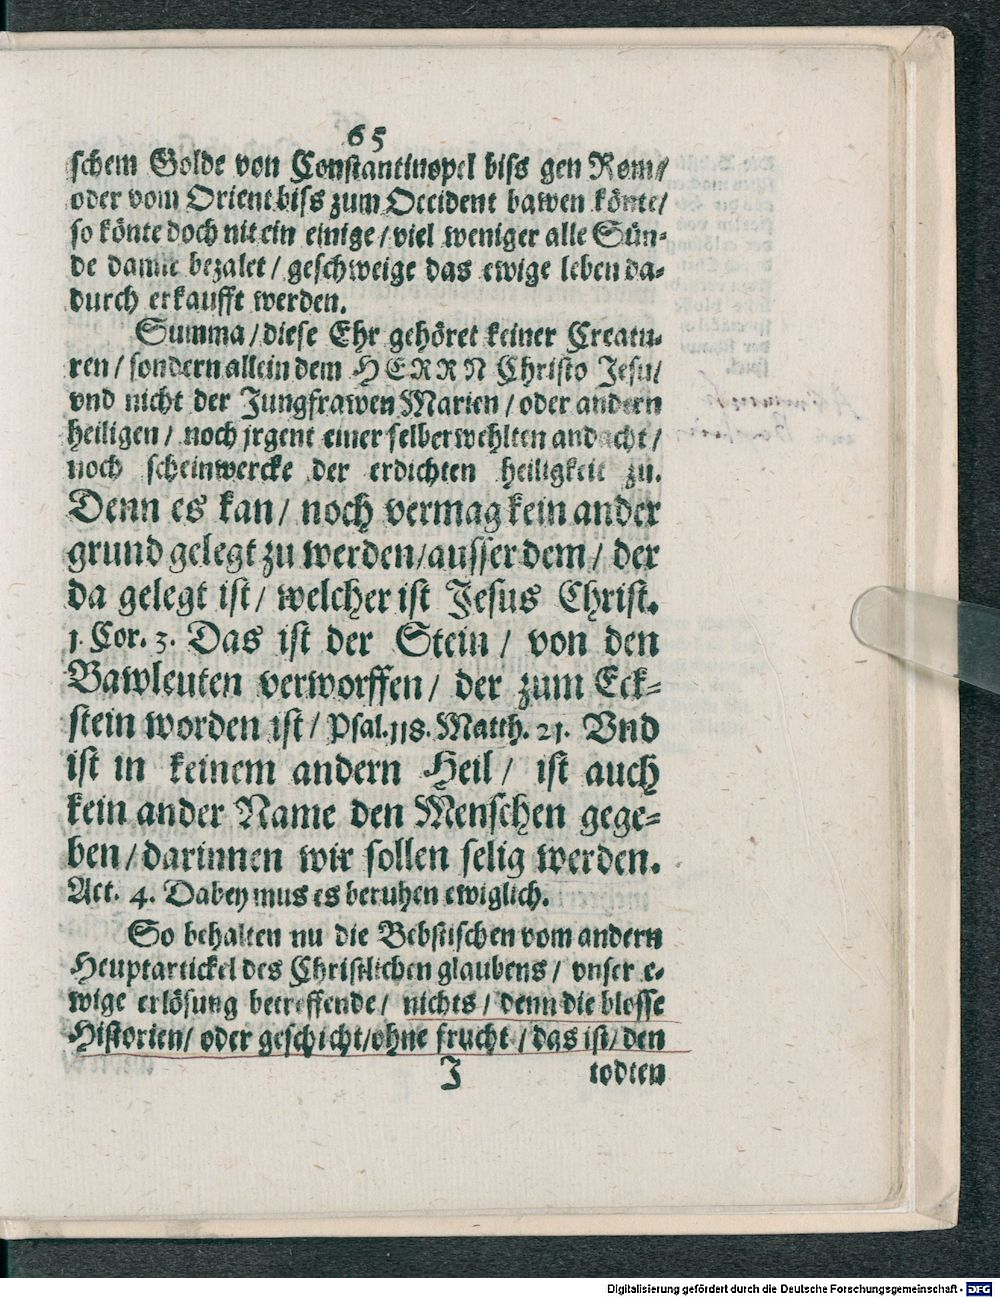 65
schem Golde von Constantinopel biss gen Rom/
oder vom Orient biss zum Occident bawen könte/
so könte doch nit ein einige / viel weniger alle Sün-
de damit bezalet / geschweige das ewige leben da-
durch erkaufft werden.
Summa / diese Ehr gehöret keiner Creatu-
ren / sondern allein dem HERRN Christo Jesu/
vnd nicht der Jungfrawen Marien / oder andern
heiligen / noch jrgent einer selberwehlten andacht /
noch scheinwercke der erdichten heiligkeit zu.
Denn es kan / noch vermag kein ander
grund gelegt zu werden / ausser dem / der
da gelegt ist / welcher ist Jesus Christ.
1. Cor. 3. Das ist der Stein / von den
Bawleuten verworffen / der zum Eck-
stein worden ist / Psal. 118. Matth. 21. Vnd
ist in keinem andern Heil / ist auch
kein ander Name den Menschen gege-
ben / darinnen wir sollen selig werden.
Act. 4. Dabey mus es beruhen ewiglich.
So behalten nu die Bebstischen vom andern
Heuptartickel des Christlichen glaubens / vnser e-
wige erlösung betreffende / nichts / denn die blosse
Historien / oder geschicht / ohne frucht / das ist / den
J todten
Digitalisierung gefördert durch die Deutsche Forschungsgemeinschaft - DFG